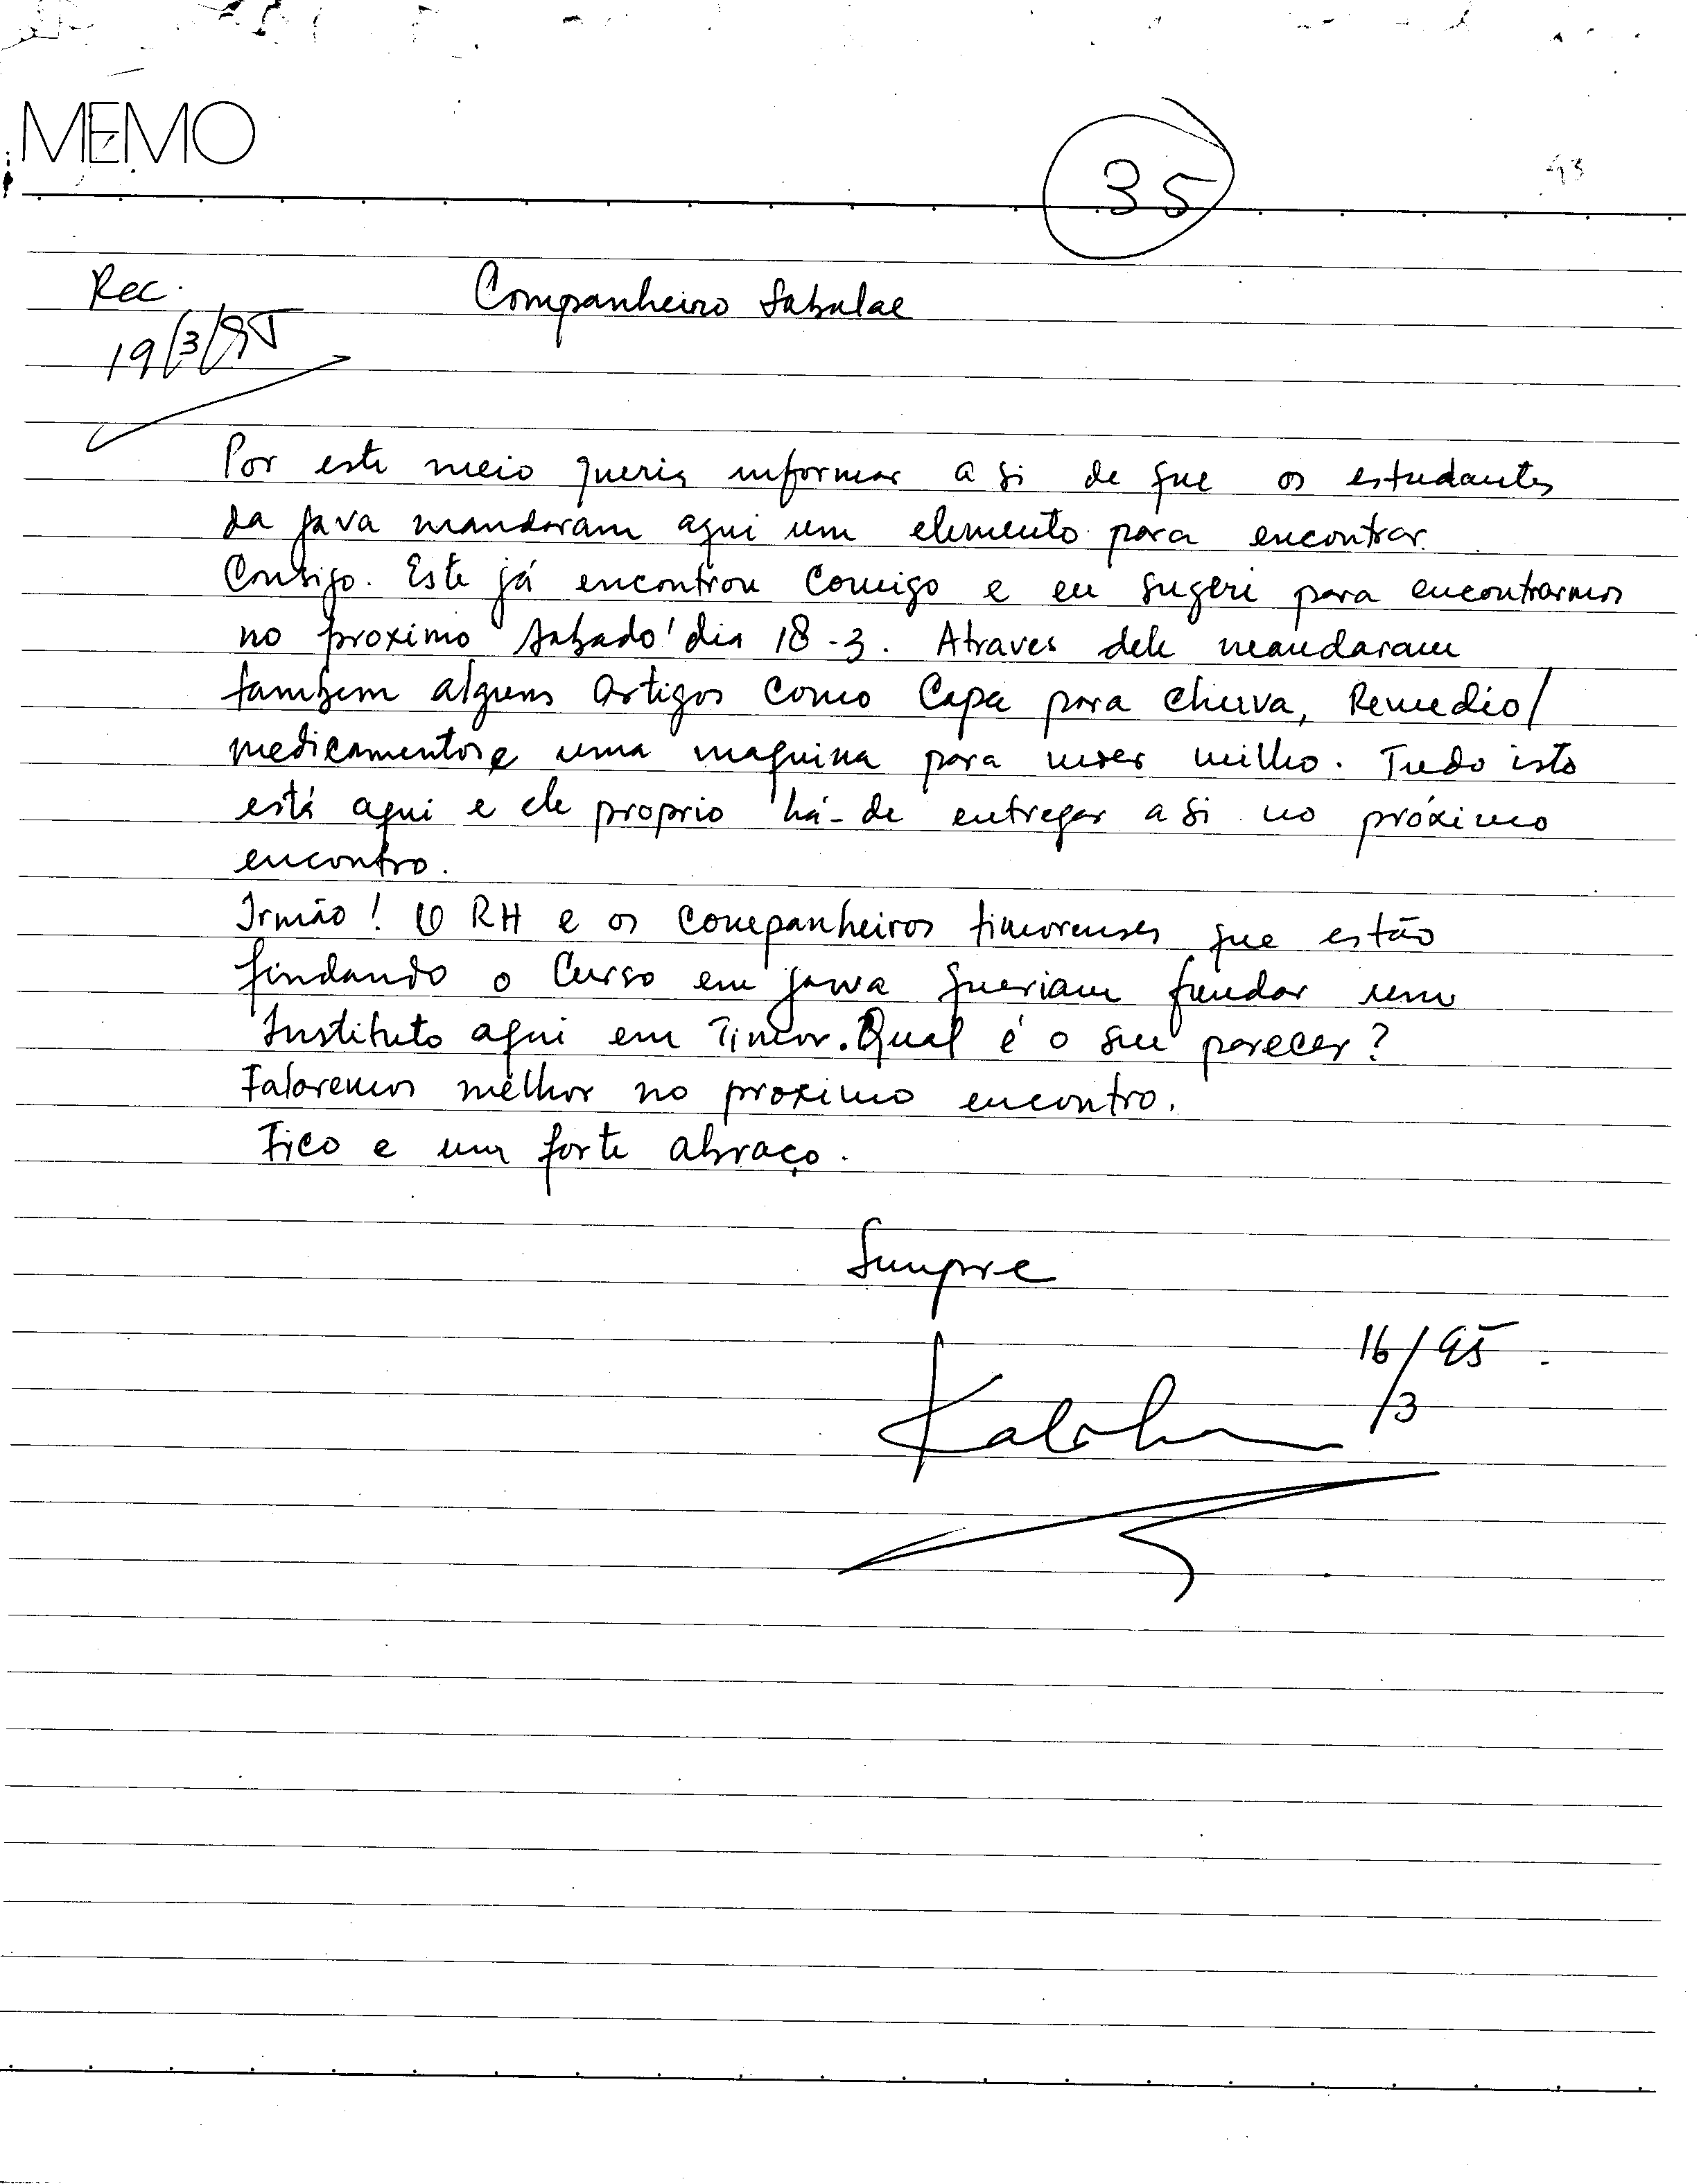 MEMO
35
93
Rec.
19/3/95
Companheiro Sabalae
Por este meio queria informar a si de que os estudantes
da Java mandaram aqui um elemento para encontrar
Consigo. Este já encontrou Comigo e eu sugeri para encontrarmos
no proximo Sabado dia 18-3. Atraves dele mandaram
tambem alguns Artigos como Capa para chuva, Remedio/
medicamentos e uma maquina para moer milho. Tudo isto
está aqui e ele proprio há-de entregar a si no próximo
encontro.
Irmão! O RH e os Companheiros timorenses que estão
findando o Curso em Jawa queriam fundar um
Instituto aqui em Timor. Qual é o seu parecer?
Falaremos melhor no proximo encontro.
Fico e um forte abraço.
Sempre
16/3/95.